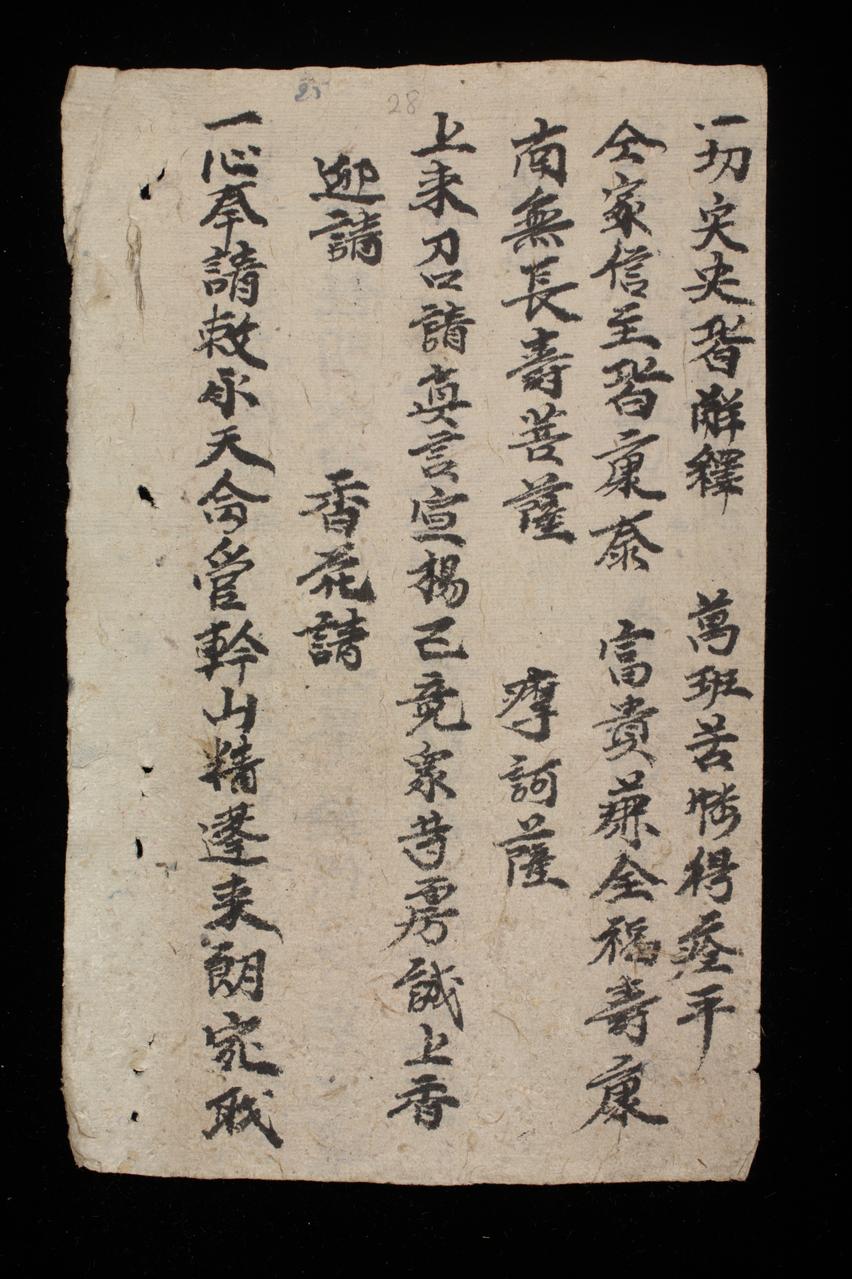 一切灾央皆解釋 萬班苦惱得痊平
仝家信主皆康泰 富貴兼全福壽康
南無長壽菩薩 摩訶薩
上来召請真言宣楊已竟衆等虔誠上香
迎請 香花請
一心奉請敕承天命管幹山精蓬来朗苑
25 28